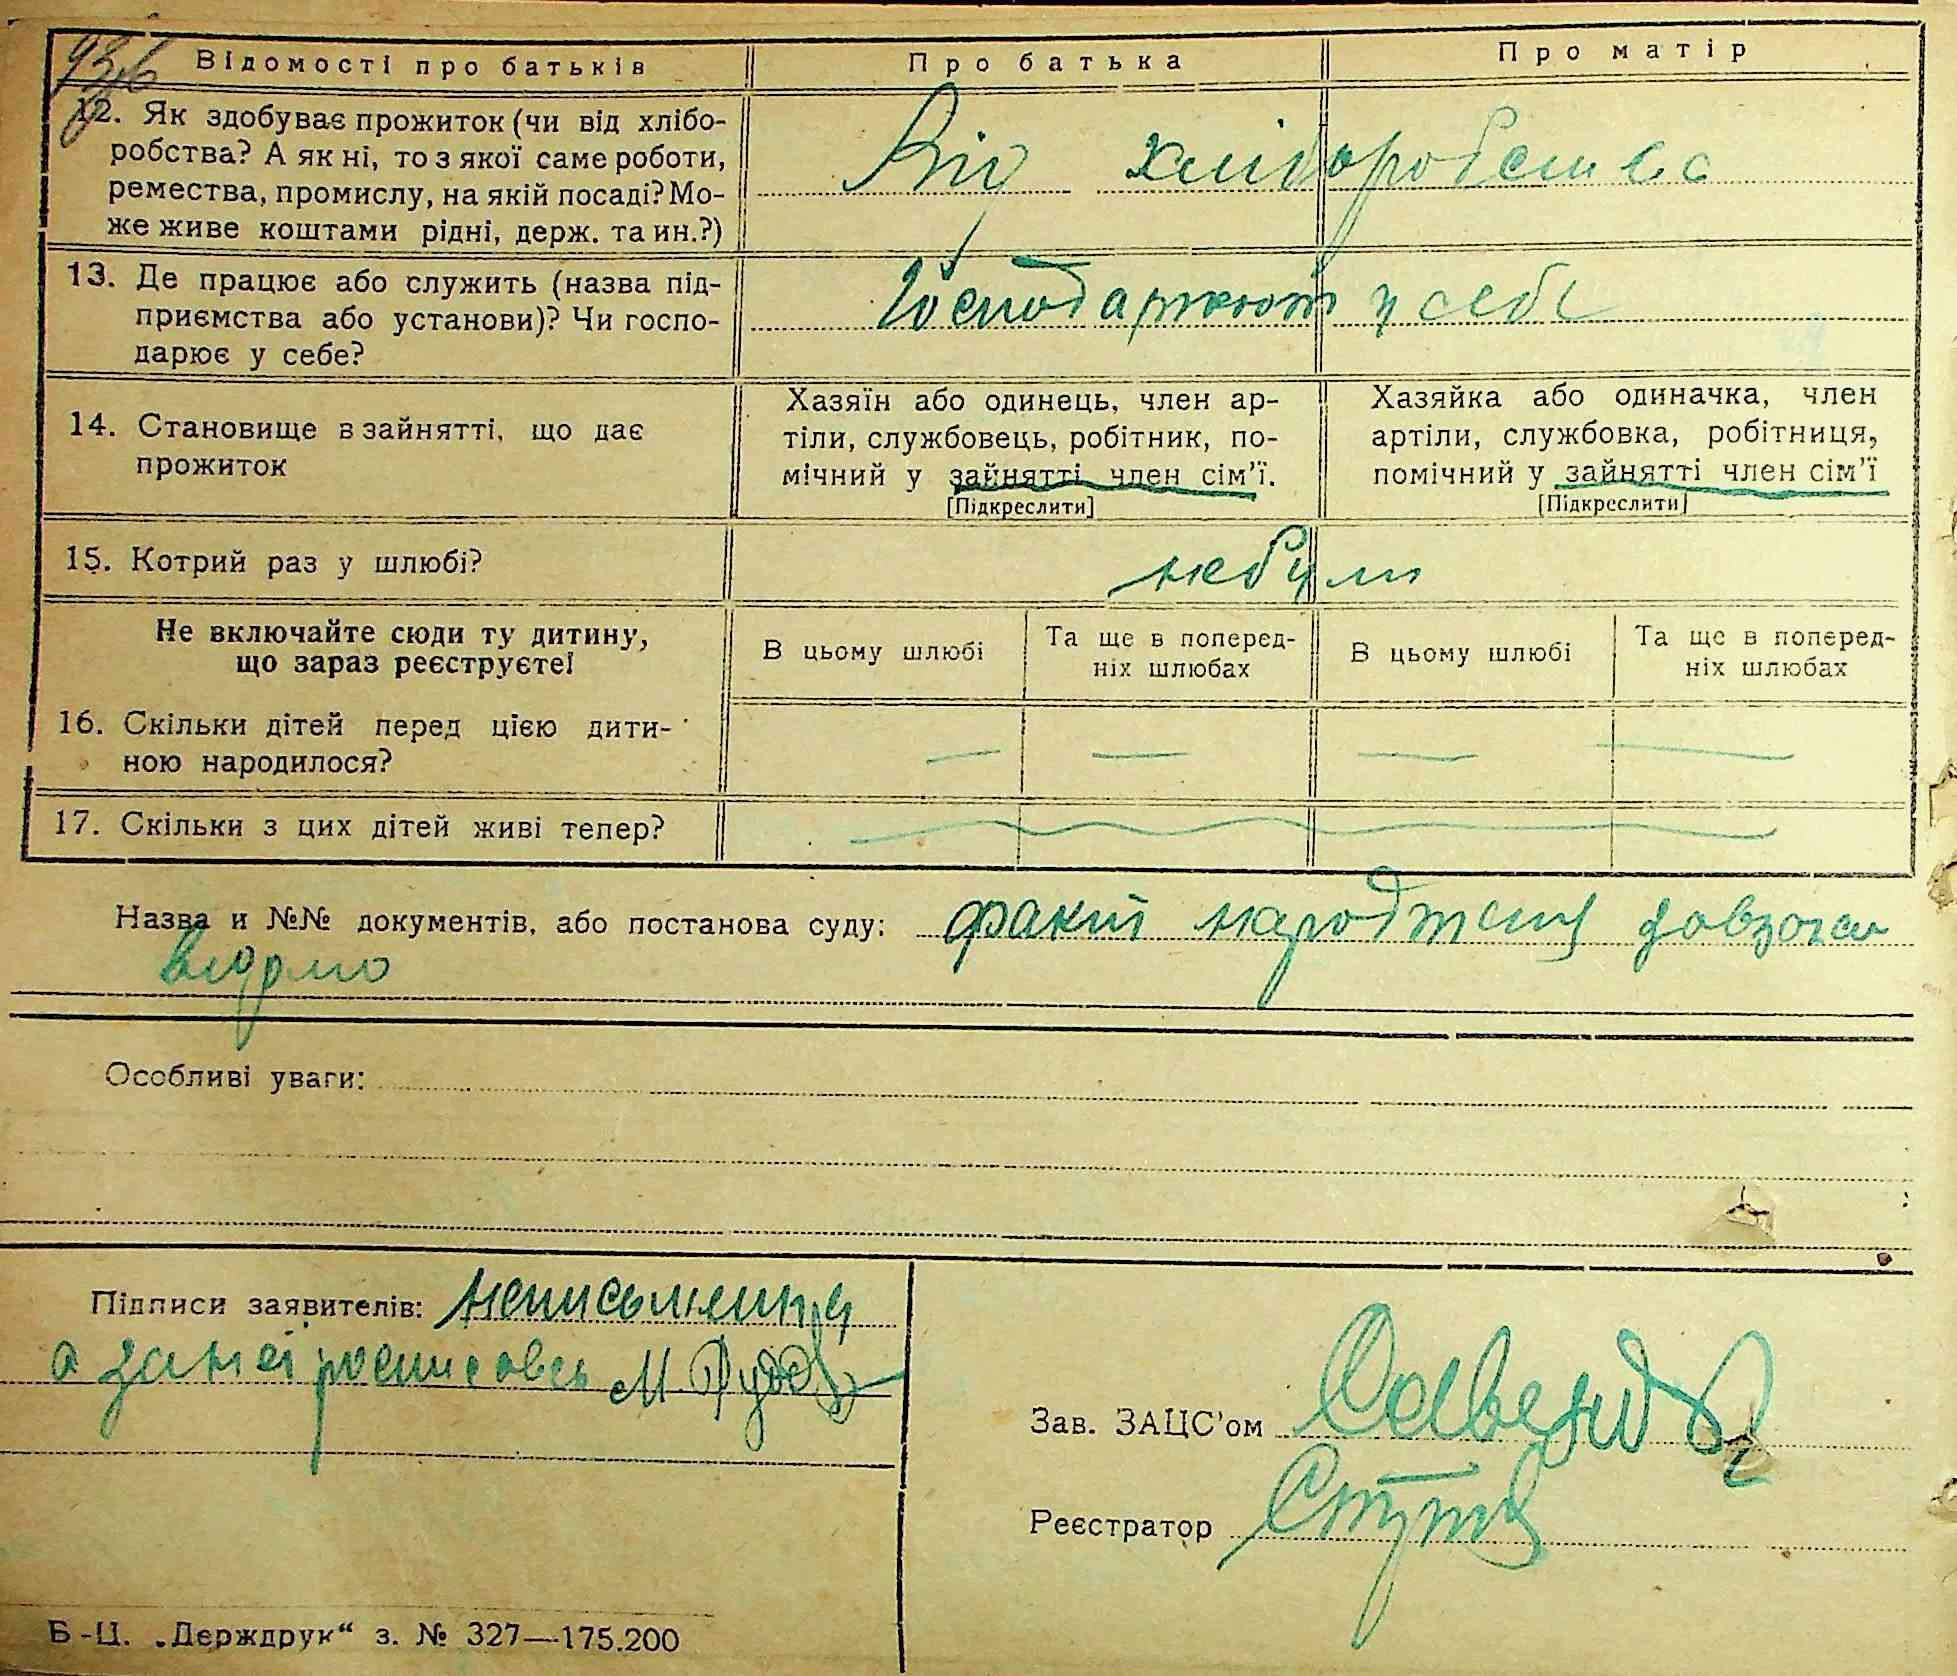 Відомості про батьків Про батька Про матір
12. Як здобуває прожиток (чи від хлібо-
робства? А як ні, то з якої саме роботи,
ремества, промислу, на якій посаді? Мо-
же живе коштами рідні, держ. та ин.?)
Від хліборобства
13. Де працює або служить (назва під-
приємства або установи)? Чи госпо-
дарює у себе?
Господарюють у себе
14. Становище в зайнятті, що дає
прожиток
Хазяїн або одинець, член ар-
тіли, службовець, робітник, по-
мічний у зайнятті член сім'ї.
[Підкреслити]
Хазяйка або одиначка, член
артіли, службовка, робітниця,
помічний у зайнятті член сім'ї
[Підкреслити]
15. Котрий раз у шлюбі?
небули
Не включайте сюди ту дитину,
що зараз реєструєте!
В цьому шлюбі
Та ще в поперед-
ніх шлюбах
В цьому шлюбі
Та ще в поперед-
ніх шлюбах
16. Скільки дітей перед цією дити-
ною народилося?
— — — —
17. Скільки з цих дітей живі тепер?
Назва и №№ документів, або постанова суду: факт народження
Особливі уваги:
Підписи заявителів: неписьменна
а за неї росписовсь М.
Зав. ЗАЦС'ом
Реєстратор
Б-Ц. „Держдрук“ з. № 327—175.200